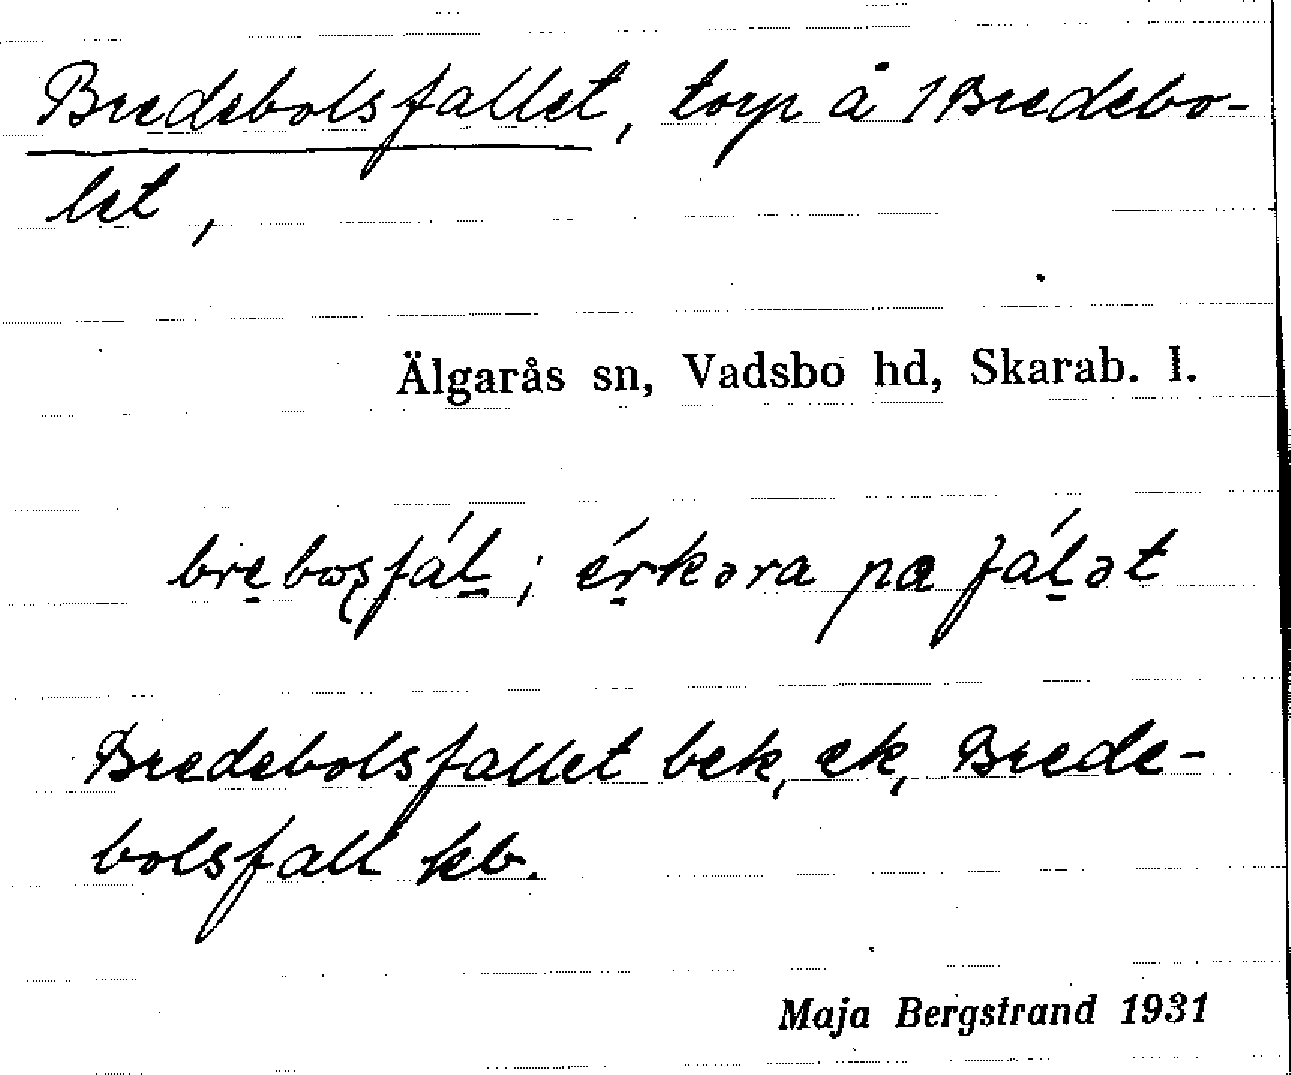 Bredebolsfallet, torp å 1 Bredebo-
let,
Älgarås sn, Vadsbo hd, Skarab. l.
; pa
Bredebolsfallet bek, ek, Brede-
bolsfall kb.
Maja Bergstrand 1931